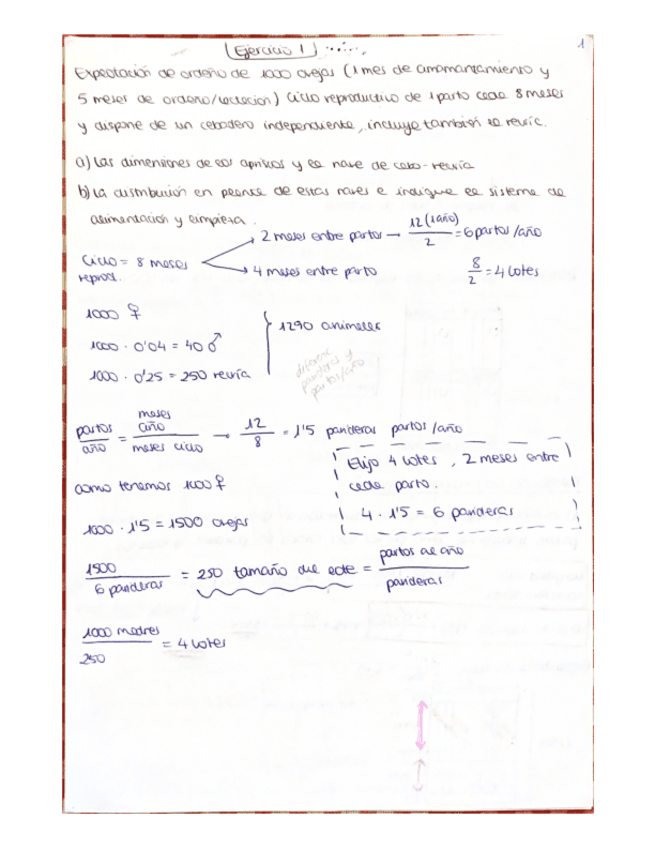 Ejercicio 1
1
Explotación de ordeño de 1000 ovejas (1 mes de amamantamiento y
5 meses de ordeño/lactación) Ciclo reproductivo de 1 parto cada 8 meses
y dispone de un cebadero independiente, incluye también la recría.
a) Las dimensiones de los apriscos y la nave de cebo-recría
b) La distribución en planta de estas naves e indique el sistema de
alimentación y limpieza.
Ciclo = 8 meses
reprod.
2 meses entre partos → 12 (1 año) / 2 = 6 partos /año
4 meses entre parto 8/2 = 4 lotes
1000 ♀
1000 · 0'04 = 40 ♂
1000 · 0'25 = 250 recría
1290 animales
diferenc
parideras y
partos/año
partos/año = meses año / meses ciclo → 12/8 = 1'5 parideras partos /año
como tenemos 1000 ♀
Elijo 4 lotes, 2 meses entre
cada parto.
4 · 1'5 = 6 parideras
1000 · 1'5 = 1500 ovejas
1500 / 6 parideras = 250 tamaño del lote = partos al año / parideras
1000 madres / 250 = 4 lotes